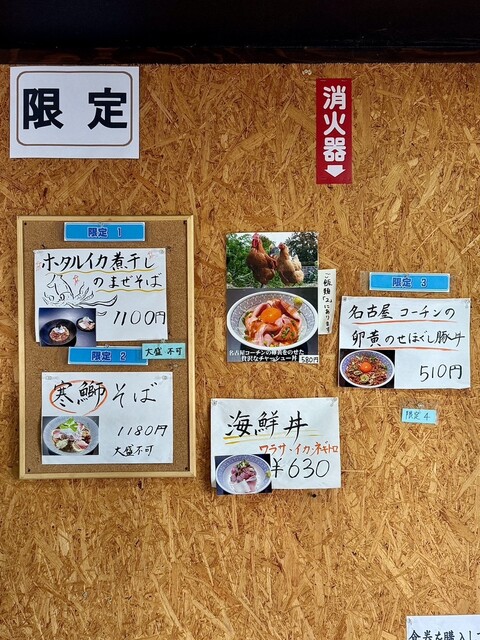 限定
消火器
限定 1
ホタルイカ煮干し
のまぜそば
1100円
限定 2
大盛 不可
寒鰤そば
1180円
大盛不可
ご飯類「2」にあります
名古屋コーチンの卵黄をのせた
贅沢なチャーシュー丼
380円
海鮮丼
ワラサ・イカ・ネギトロ
¥630
限定 3
名古屋コーチンの
卵黄のせほぐし豚丼
510円
限定 4
食券を購入し